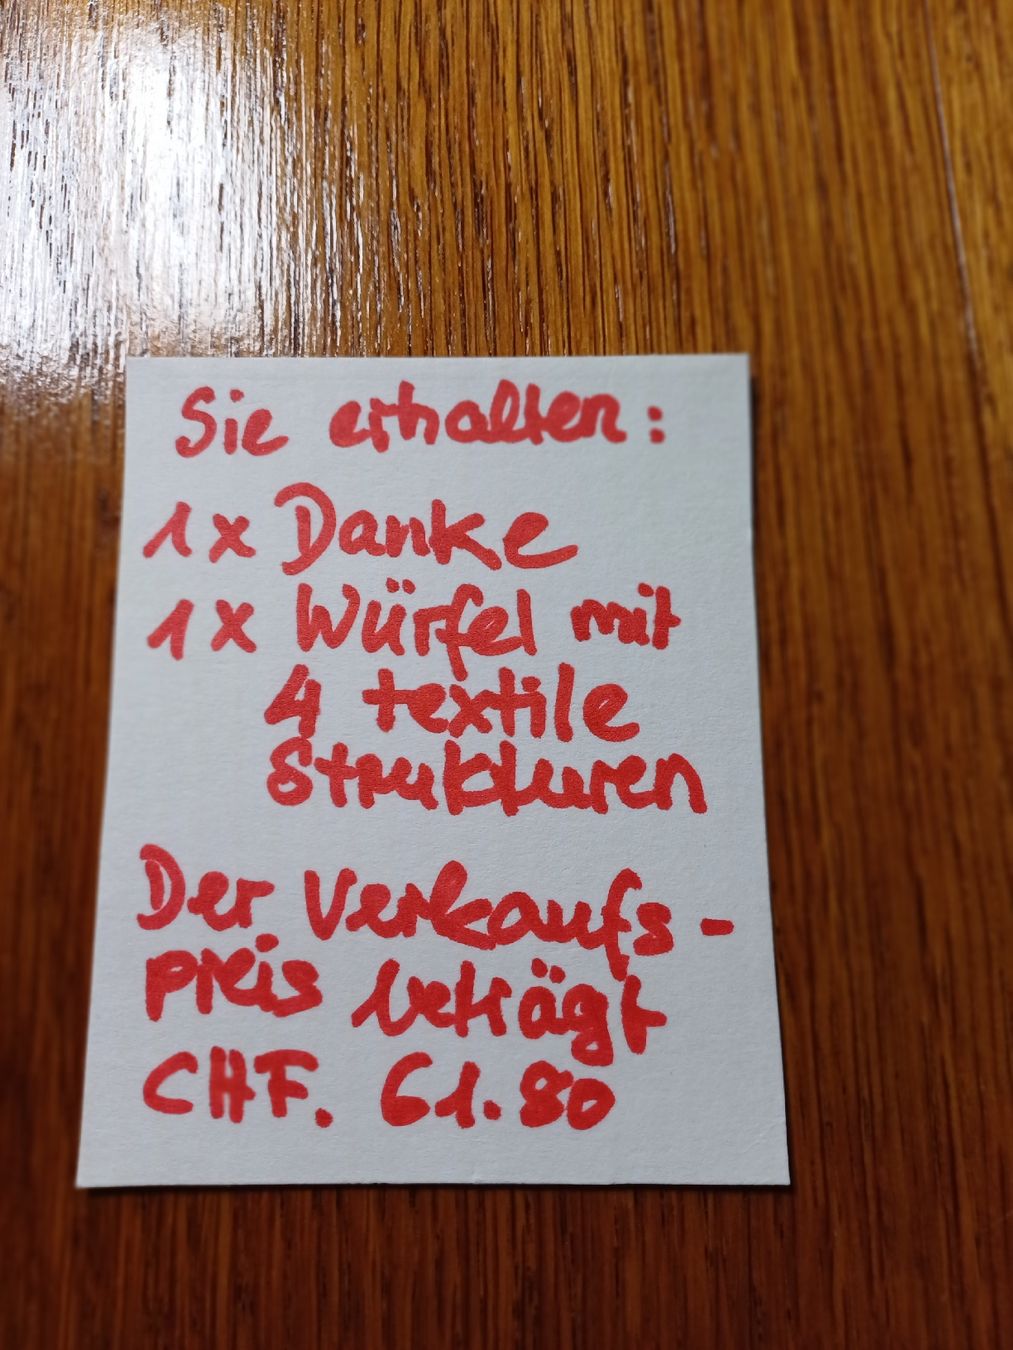 Sie erhalten:
1x Danke
1x Würfel mit
4 textile
Strukturen
Der Verkaufs-
preis beträgt
CHF. 61.80